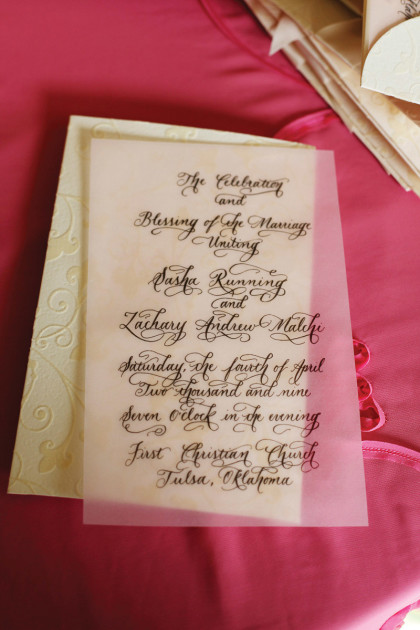 The Celebration
and
Blessing of the Marriage
Uniting
Sasha Running
and
Zachary Andrew Malthe
Saturday, the fourth of April
Two thousand and nine
Seven O'clock in the evening
First Christian Church
Tulsa, Oklahoma